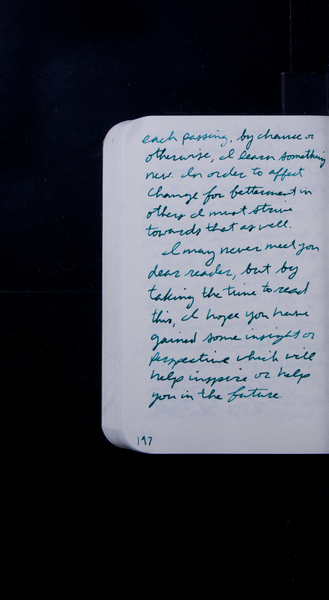 each passing, by chance or
otherwise, I learn something
new. In order to affect
change for betterment in
others I must strive
towards that as well.
I may never meet you
dear reader, but by
taking the time to read
this, I hope you have
gained some insight or
perspective which will
help inspire or help
you in the future.
197